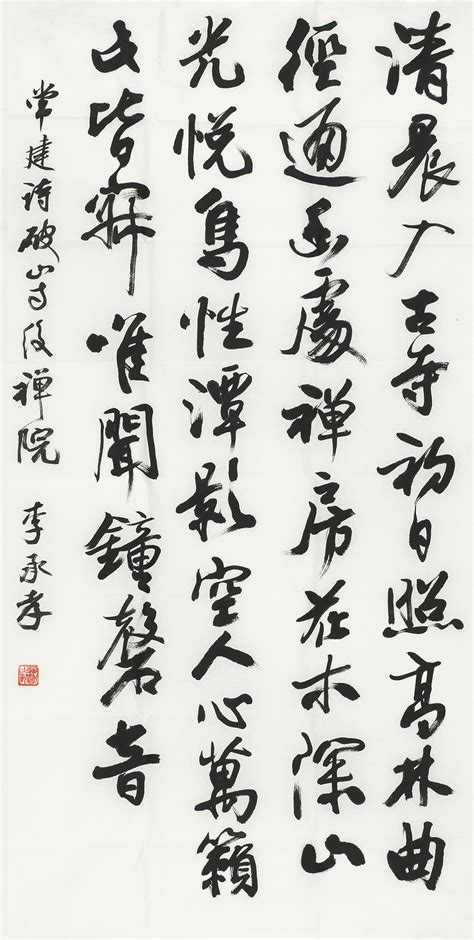 清晨入古寺初日照高林曲
徑通幽處禅房花木深山
光悦鳥性潭影空人心萬籟
此皆寂唯聞鐘磬音
常建诗破山寺後禅院 李承孝